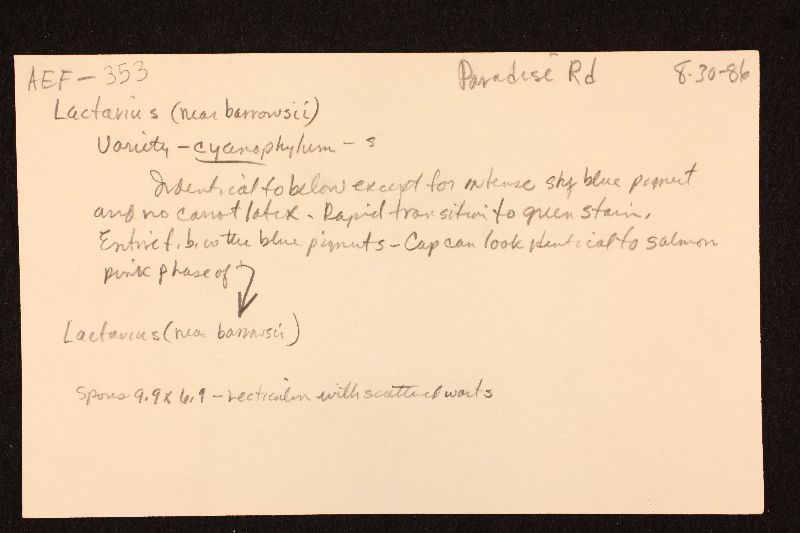 AEF - 353 Paradise Rd 8-30-86
Lactarius (near barrowsii)
Variety - cyanophyllum - s
Indentical to below except for intense sky blue pigment
and no carrot latex. Rapid transition to green stain.
Entire f.b. w the blue pigments - Cap can look identical to salmon
pink phase of
Lactarius (near barrowsii)
Spores 9.9 x 6.9 - recticulum with scattered warts